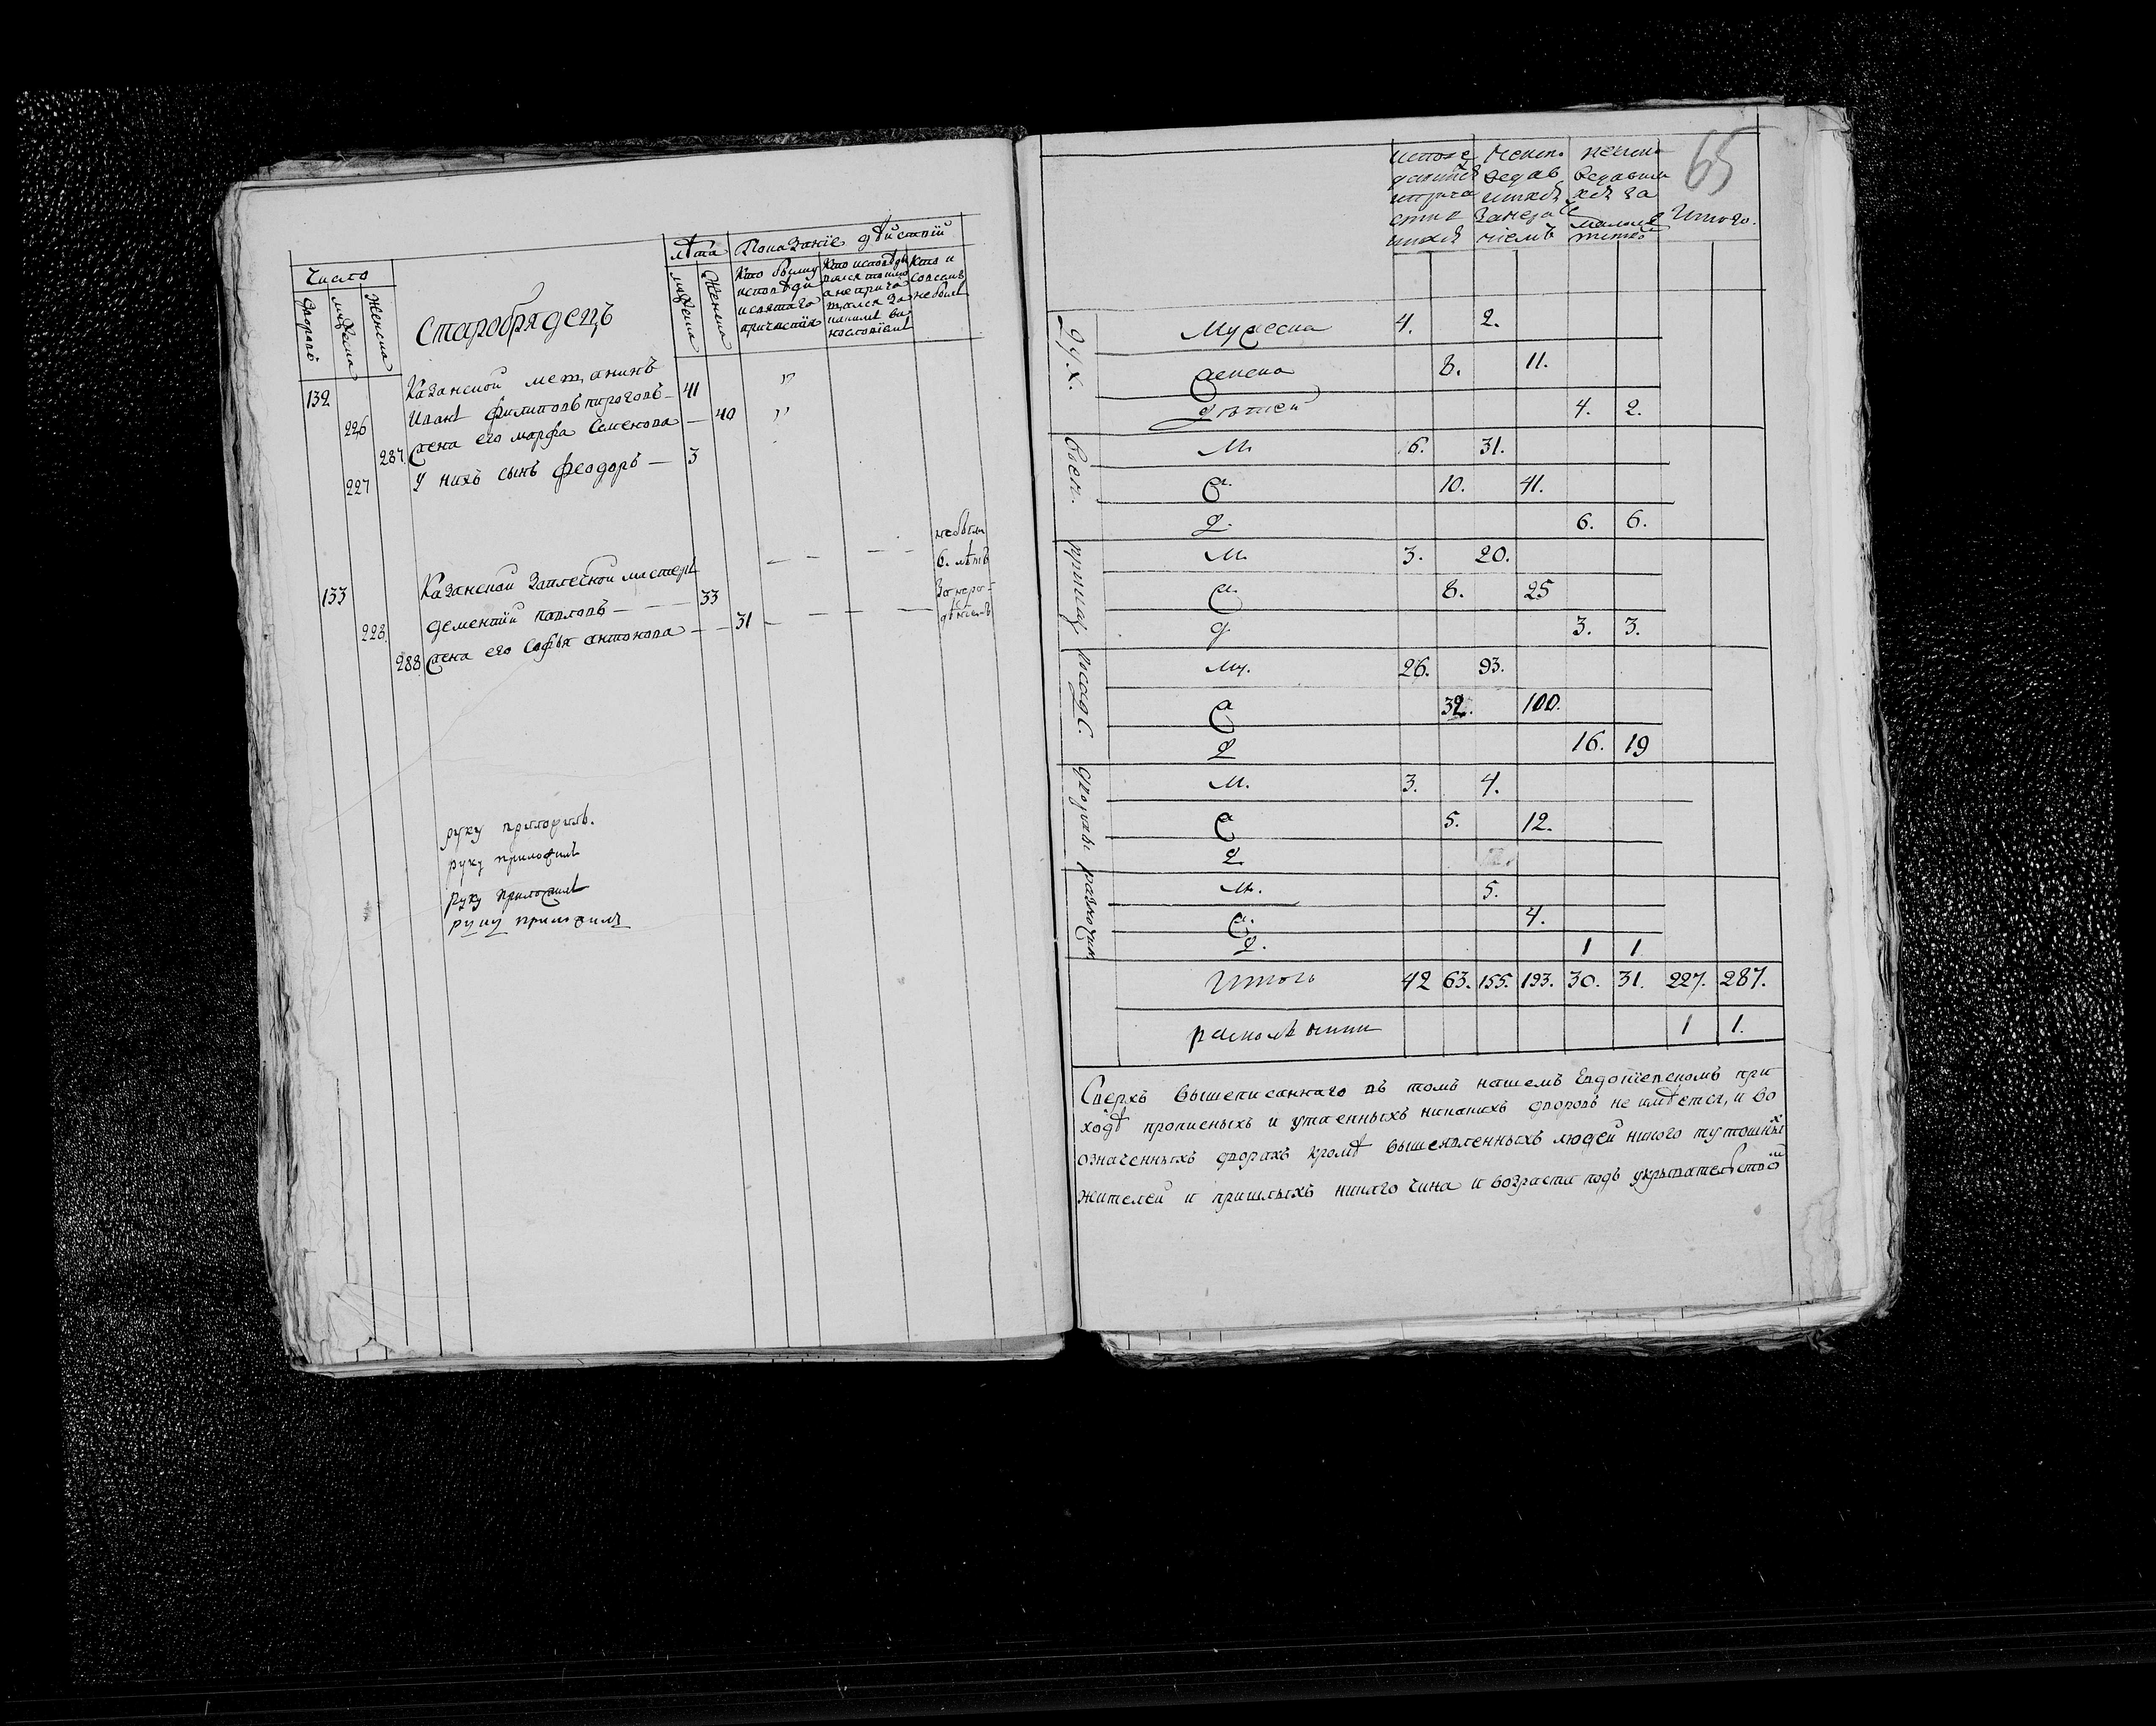 Число
лѣта Показанїе дѣйствїй
дворовъ мужеска женска
Старобрядецъ
мужеска женска
Кто былъ у исповѣди и святаго причастїя
Кто исповѣдывался токмо а не причащался за каким виннословїемъ
Кто и совсемъ не былъ
132 Казанской мещанинъ
226 Иванъ Филиповъ пироговъ — 41 "
287 Жена его марфа Семенова — 40 "
227 У нихъ сынъ феодоръ — 3
не были
6. лѣтъ
133 Казанской мастеръ
за нера-
228. дементїй павловъ — — — 33
дѣнїемъ
288 Жена его Софья антонова — — 31 —
руку приложилъ.
руку приложилъ
руку приложилъ
руку приложилъ
65
исповедавшїяся и причастившихся
неисповедавшихся за нераченїемъ
неисповедавшихся за малолетством
Итого.
Дух.
Мужеска 4. 2.
женска 8. 11.
детей 4. 2.
воен.
М. 6. 31.
Ж. 10. 41.
Д. 6. 6.
приказ.
М. 3. 20.
Ж. 8. 25
Д 3. 3.
посадс.
Му. 26. 93.
Ж 32. 100.
Д 16. 19
дворов.
М. 3. 4.
Ж 5. 12.
Д.
разночин
М. 5.
Ж. 4.
Д. 1 1
Итого 42 63. 155. 193. 30. 31. 227. 287.
расколники 1 1.
Сверхъ вышеписаннаго въ томъ нашемъ Евдокїевскомъ при
ходѣ прописныхъ и утаенныхъ никакихъ дворовъ не имѣется, и во
означенныхъ дворахъ кромѣ вышеявленныхъ людей никого тутошних
жителей и пришлыхъ никаго чина и возраста подъ укрывательством